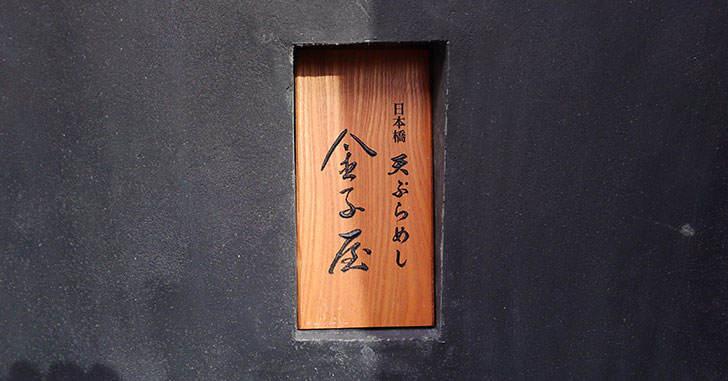 日本橋 天ぷらめし
金子屋